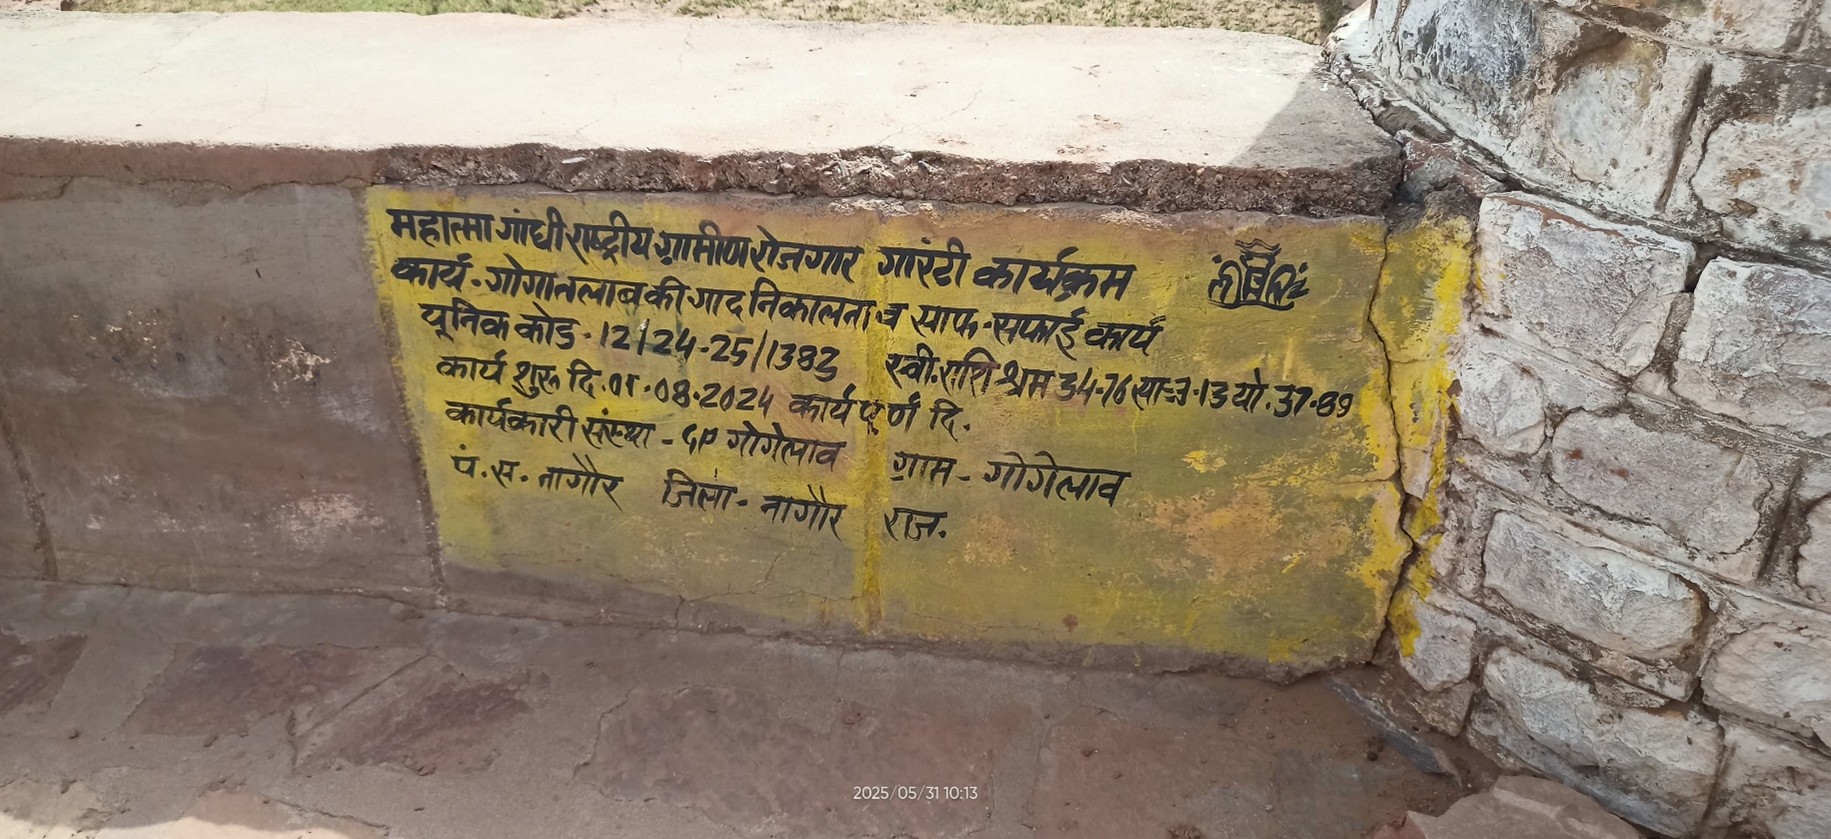 महात्मा गांधी राष्ट्रीय ग्रामीण रोजगार गारंटी कार्यक्रम
कार्य - गोगातलाब की गाद निकालना व साफ-सफाई कार्य
यूनिक कोड - 12/24-25/1383 स्वी. राशि श्रम 34-76 सा-3-13 यो. 37-89
कार्य शुरू दि. 01-08-2024 कार्य पूर्ण दि.
कार्यकारी संस्था - GP गोगेलाव ग्राम - गोगेलाव
पं. स. नागौर जिला - नागौर राज.
2025/05/31 10:13